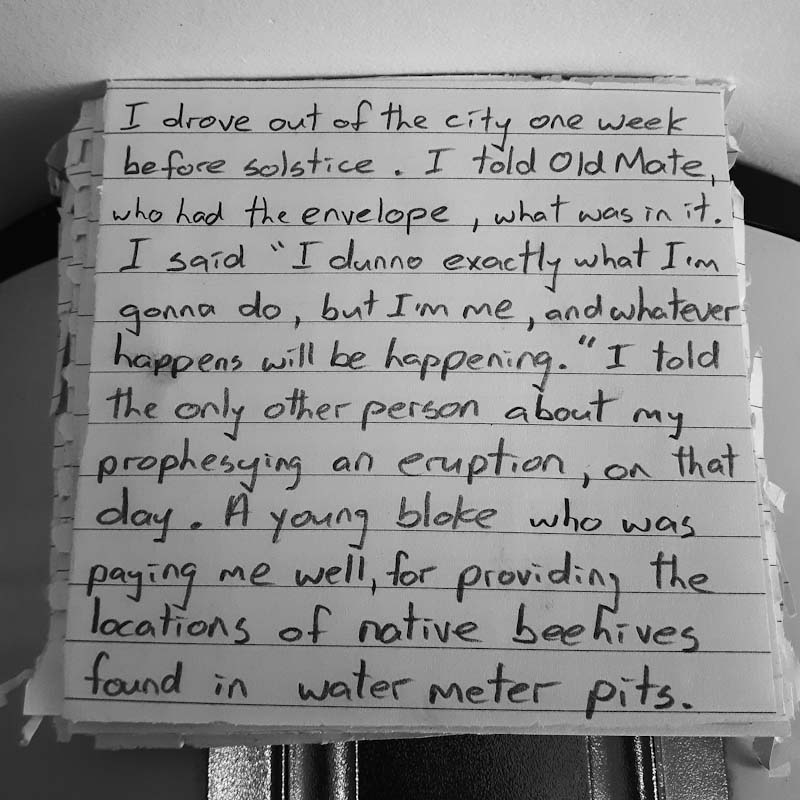 I drove out of the city one week
before solstice. I told Old Mate,
who had the envelope, what was in it.
I said "I dunno exactly what I'm
gonna do, but I'm me, and whatever
happens will be happening." I told
the only other person about my
prophesying an eruption, on that
day. A young bloke who was
paying me well, for providing the
locations of native beehives
found in water meter pits.